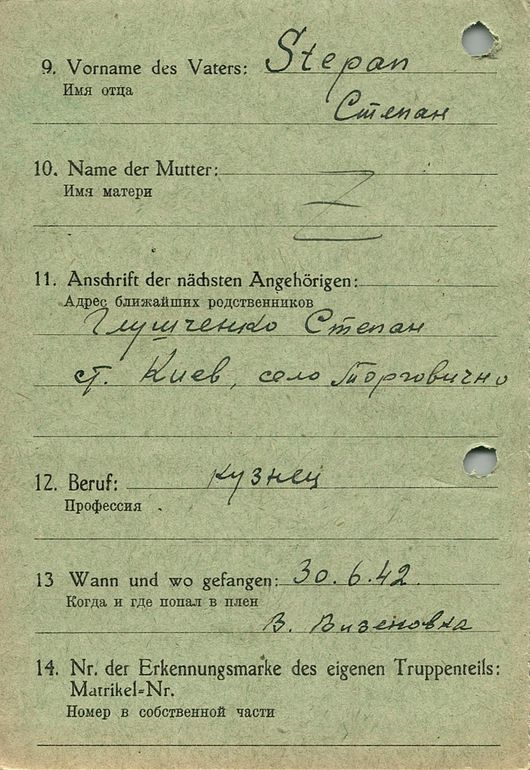 9. Vorname des Vaters: Stepan
Имя отца
Степан
10. Name der Mutter:
Имя матери
11. Anschrift der nächsten Angehörigen:
Адрес ближайших родственников
Глущенко Степан
ст. Киев, село Торговично
12. Beruf: кузнец
Профессия
13 Wann und wo gefangen: 30.6.42.
Когда и где попал в плен
В. Визеновка
14. Nr. der Erkennungsmarke des eigenen Truppenteils:
Matrikel-Nr.
Номер в собственной части